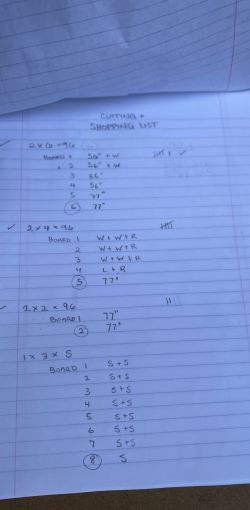 CUTTING +
SHOPPING LIST
✓ 2 x 6 = 96
BOARD 1 56" + W
2 56" + W
3 56"
4 56"
5 77"
6 77"
✓ 2 x 4 = 96
BOARD 1 W + W + R
2 W + W + R
3 W + W + R
4 L + R
5 77"
2 x 2 = 96 11
BOARD 1 77"
2 77"
1 x 3 x 5
BOARD 1 S + S
2 S + S
3 S + S
4 S + S
5 S + S
6 S + S
7 S + S
8 S